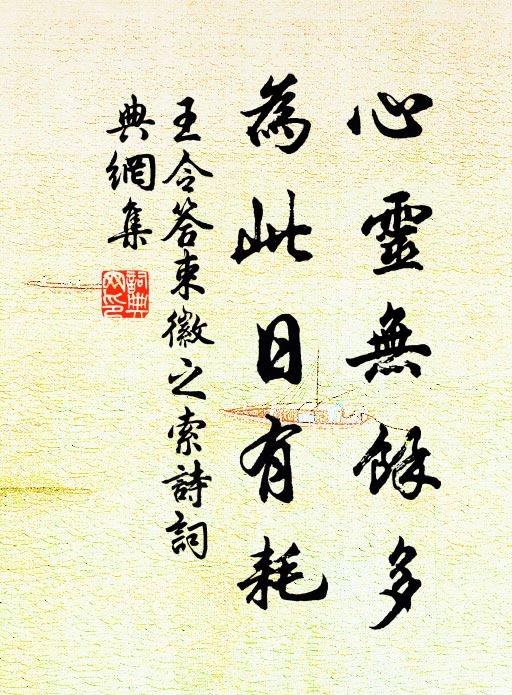 心靈無餘多
為此日有耗
王令答束徽之索詩詞
典網集
詞典
网印